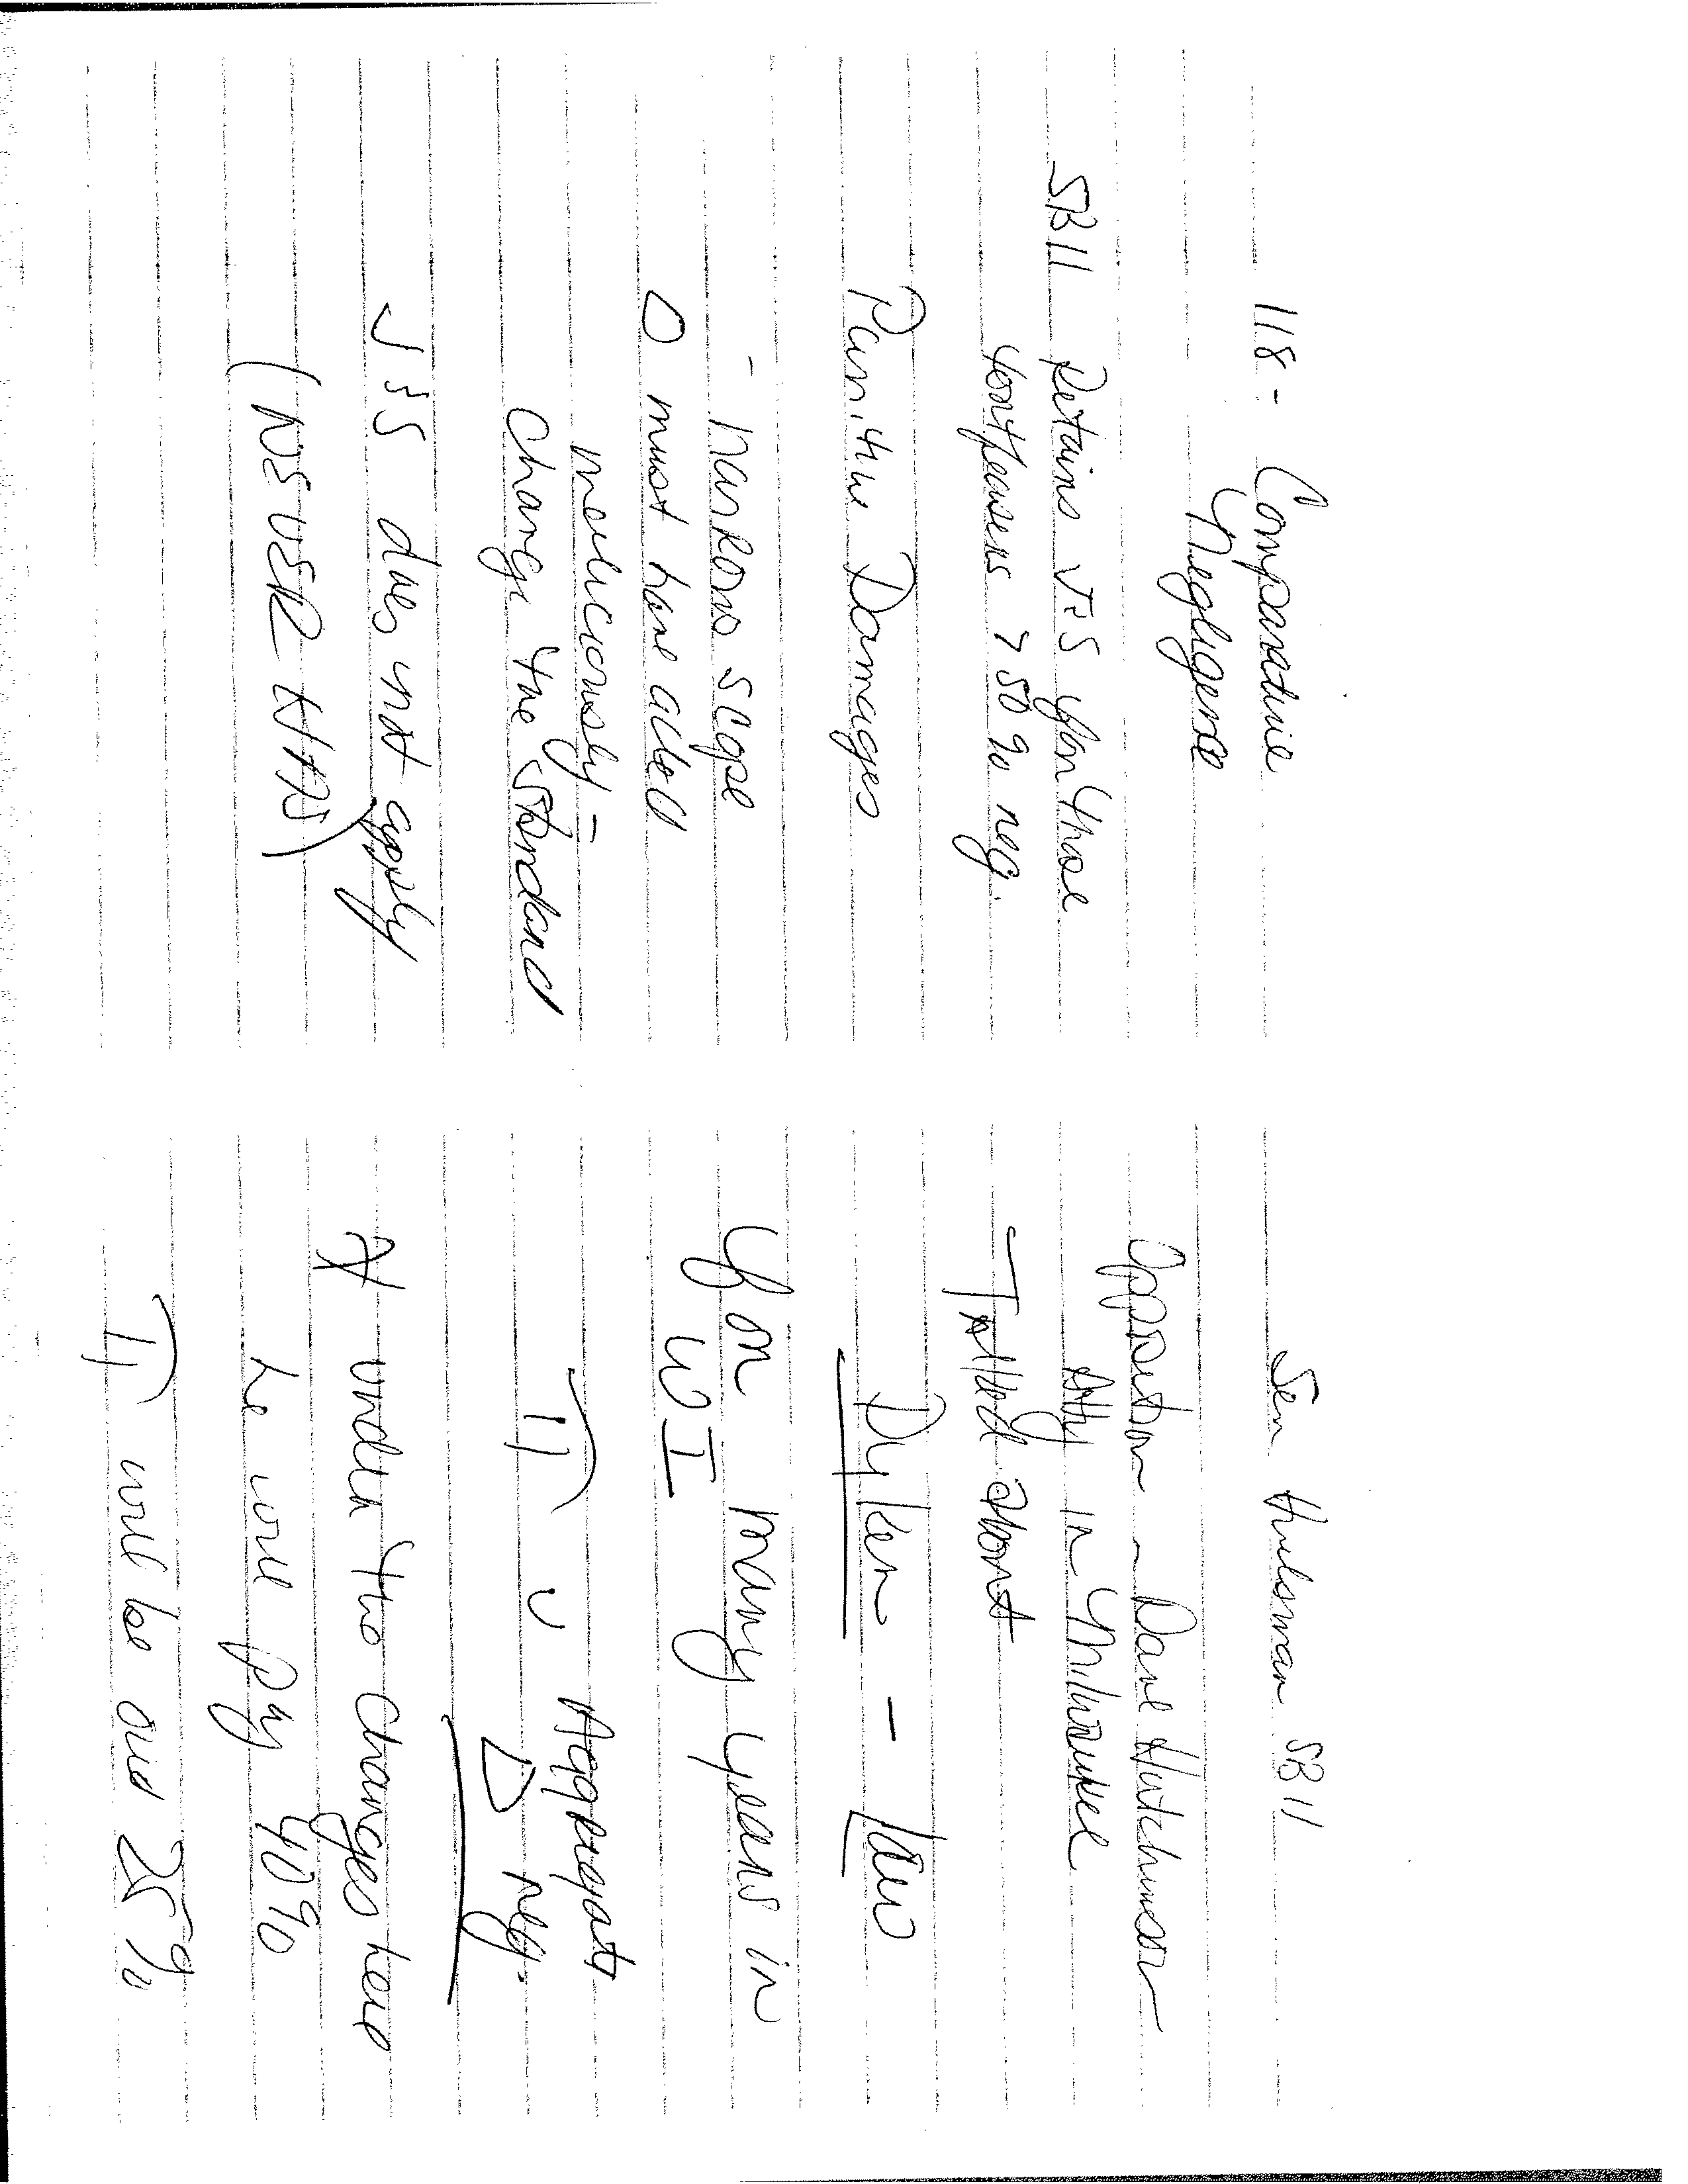 118 - Comparative
Negligence
SB11 Retains J+S for those
tortfeasors > 50% neg.
Punitive Damages
- narrows scope
Δ must have acted
maliciously -
change the standard
J & S does not apply
(NEVER HAS)
Sen Huelsman SB 11
Opposition - Dave Hutchinson
Atty in Milwaukee
- Talked about
Dyken - Law
for many years in
WI
π v Aggregate
Δ neg.
* under the changes here
he will pay 40%
π will be out 25%